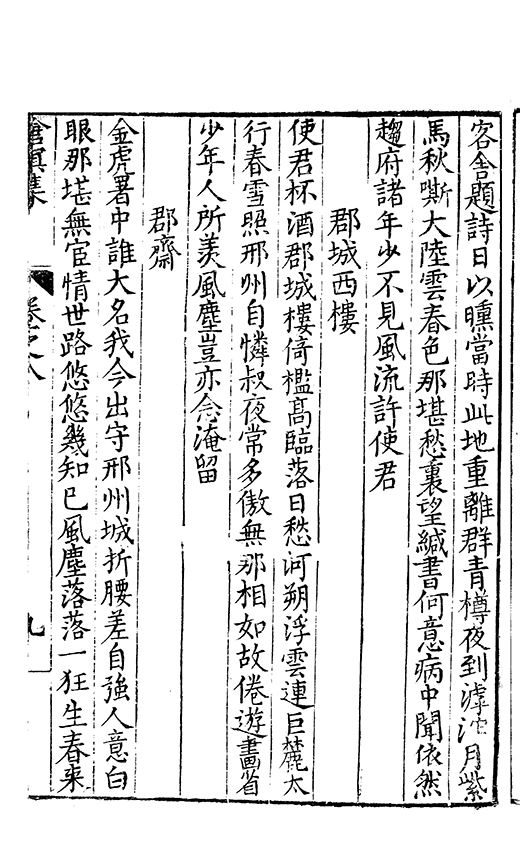 客舍題詩日以曛當時此地重離群青樽夜到滹沱月紫
馬秋嘶大陸雲春色那堪愁裏望緘書何意病中聞依然
趨府諸年少不見風流許使君
郡城西樓
使君杯酒郡城樓倚檻高臨落日愁河朔浮雲連巨麓太
行春雪照邢州自憐叔夜常多傲無那相如故倦遊畫省
少年人所羨風塵豈亦念淹留
郡齋
金虎署中誰大名我今出守邢州城折腰差自強人意白
眼那堪無宦情世路悠悠幾知己風塵落落一狂生春來
滄溟集
卷之八
九